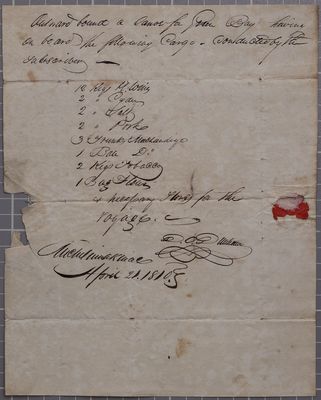 Outward bound a Canoe for Green Bay having
on board the following Cargo. Conducted by the
Subscriber
12 Kegs H. Wine
2 " 
2 " Salt
2 " Pork
3 Trunks Merchandize
1 Bale Do
2 Kegs Tobacco
1 Bag Flour
& necessary Stores for the
Voyage.
Michilimackinac
April 21. 1810